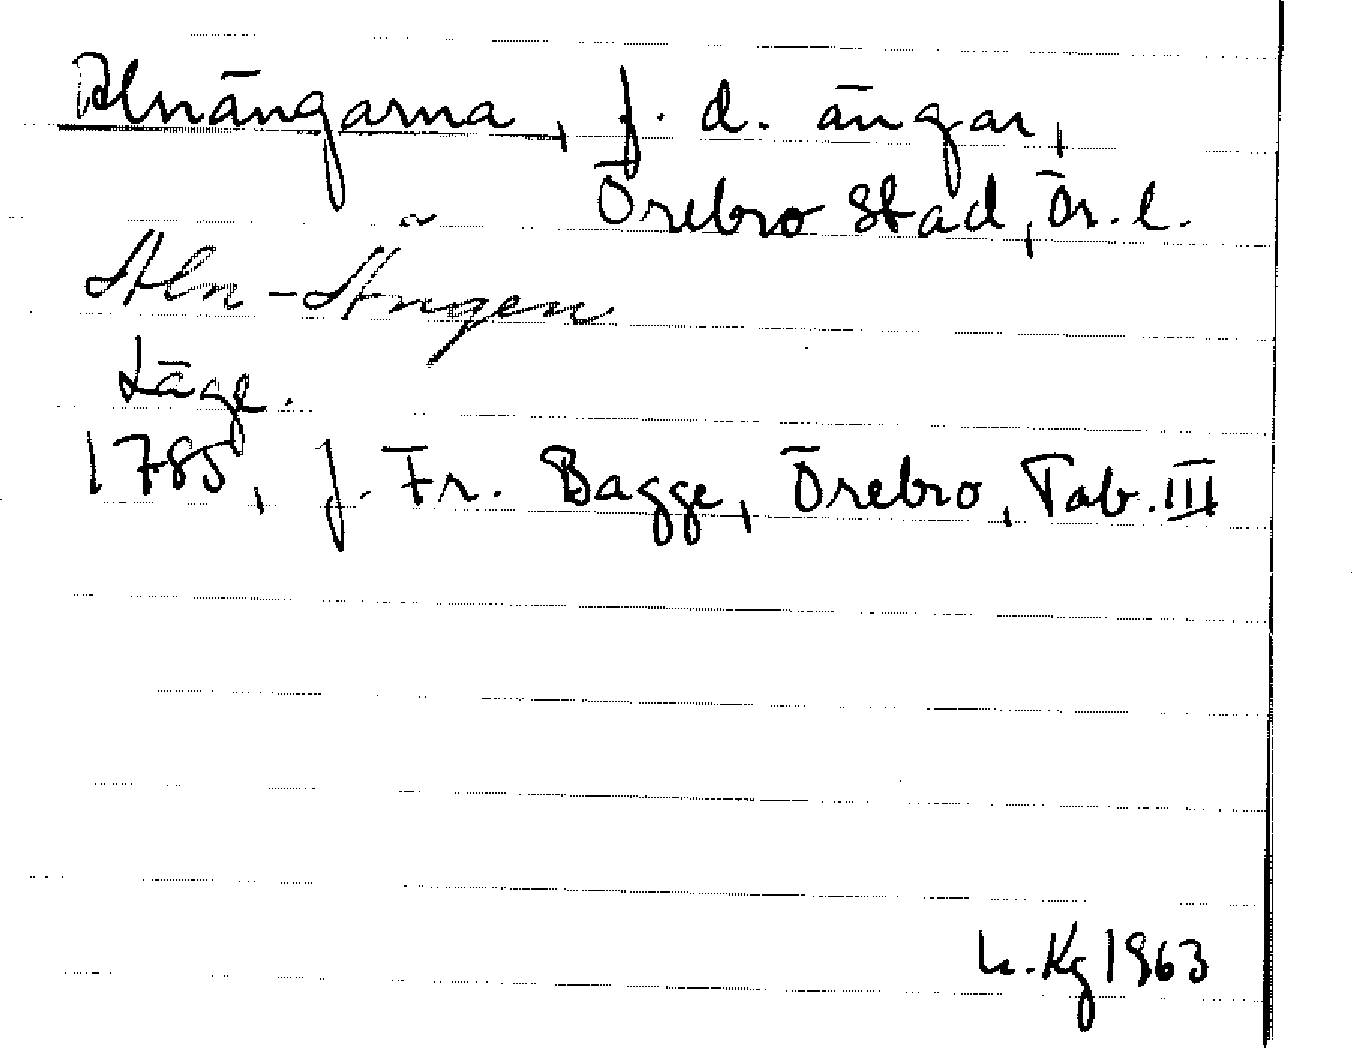 Alnängarna, f. d. ängar,
Örebro stad, Ör. l.
Aln-Ängen
Läge.
1785, J. Fr. Bagge, Örebro, Tab. III
L. Kg 1963